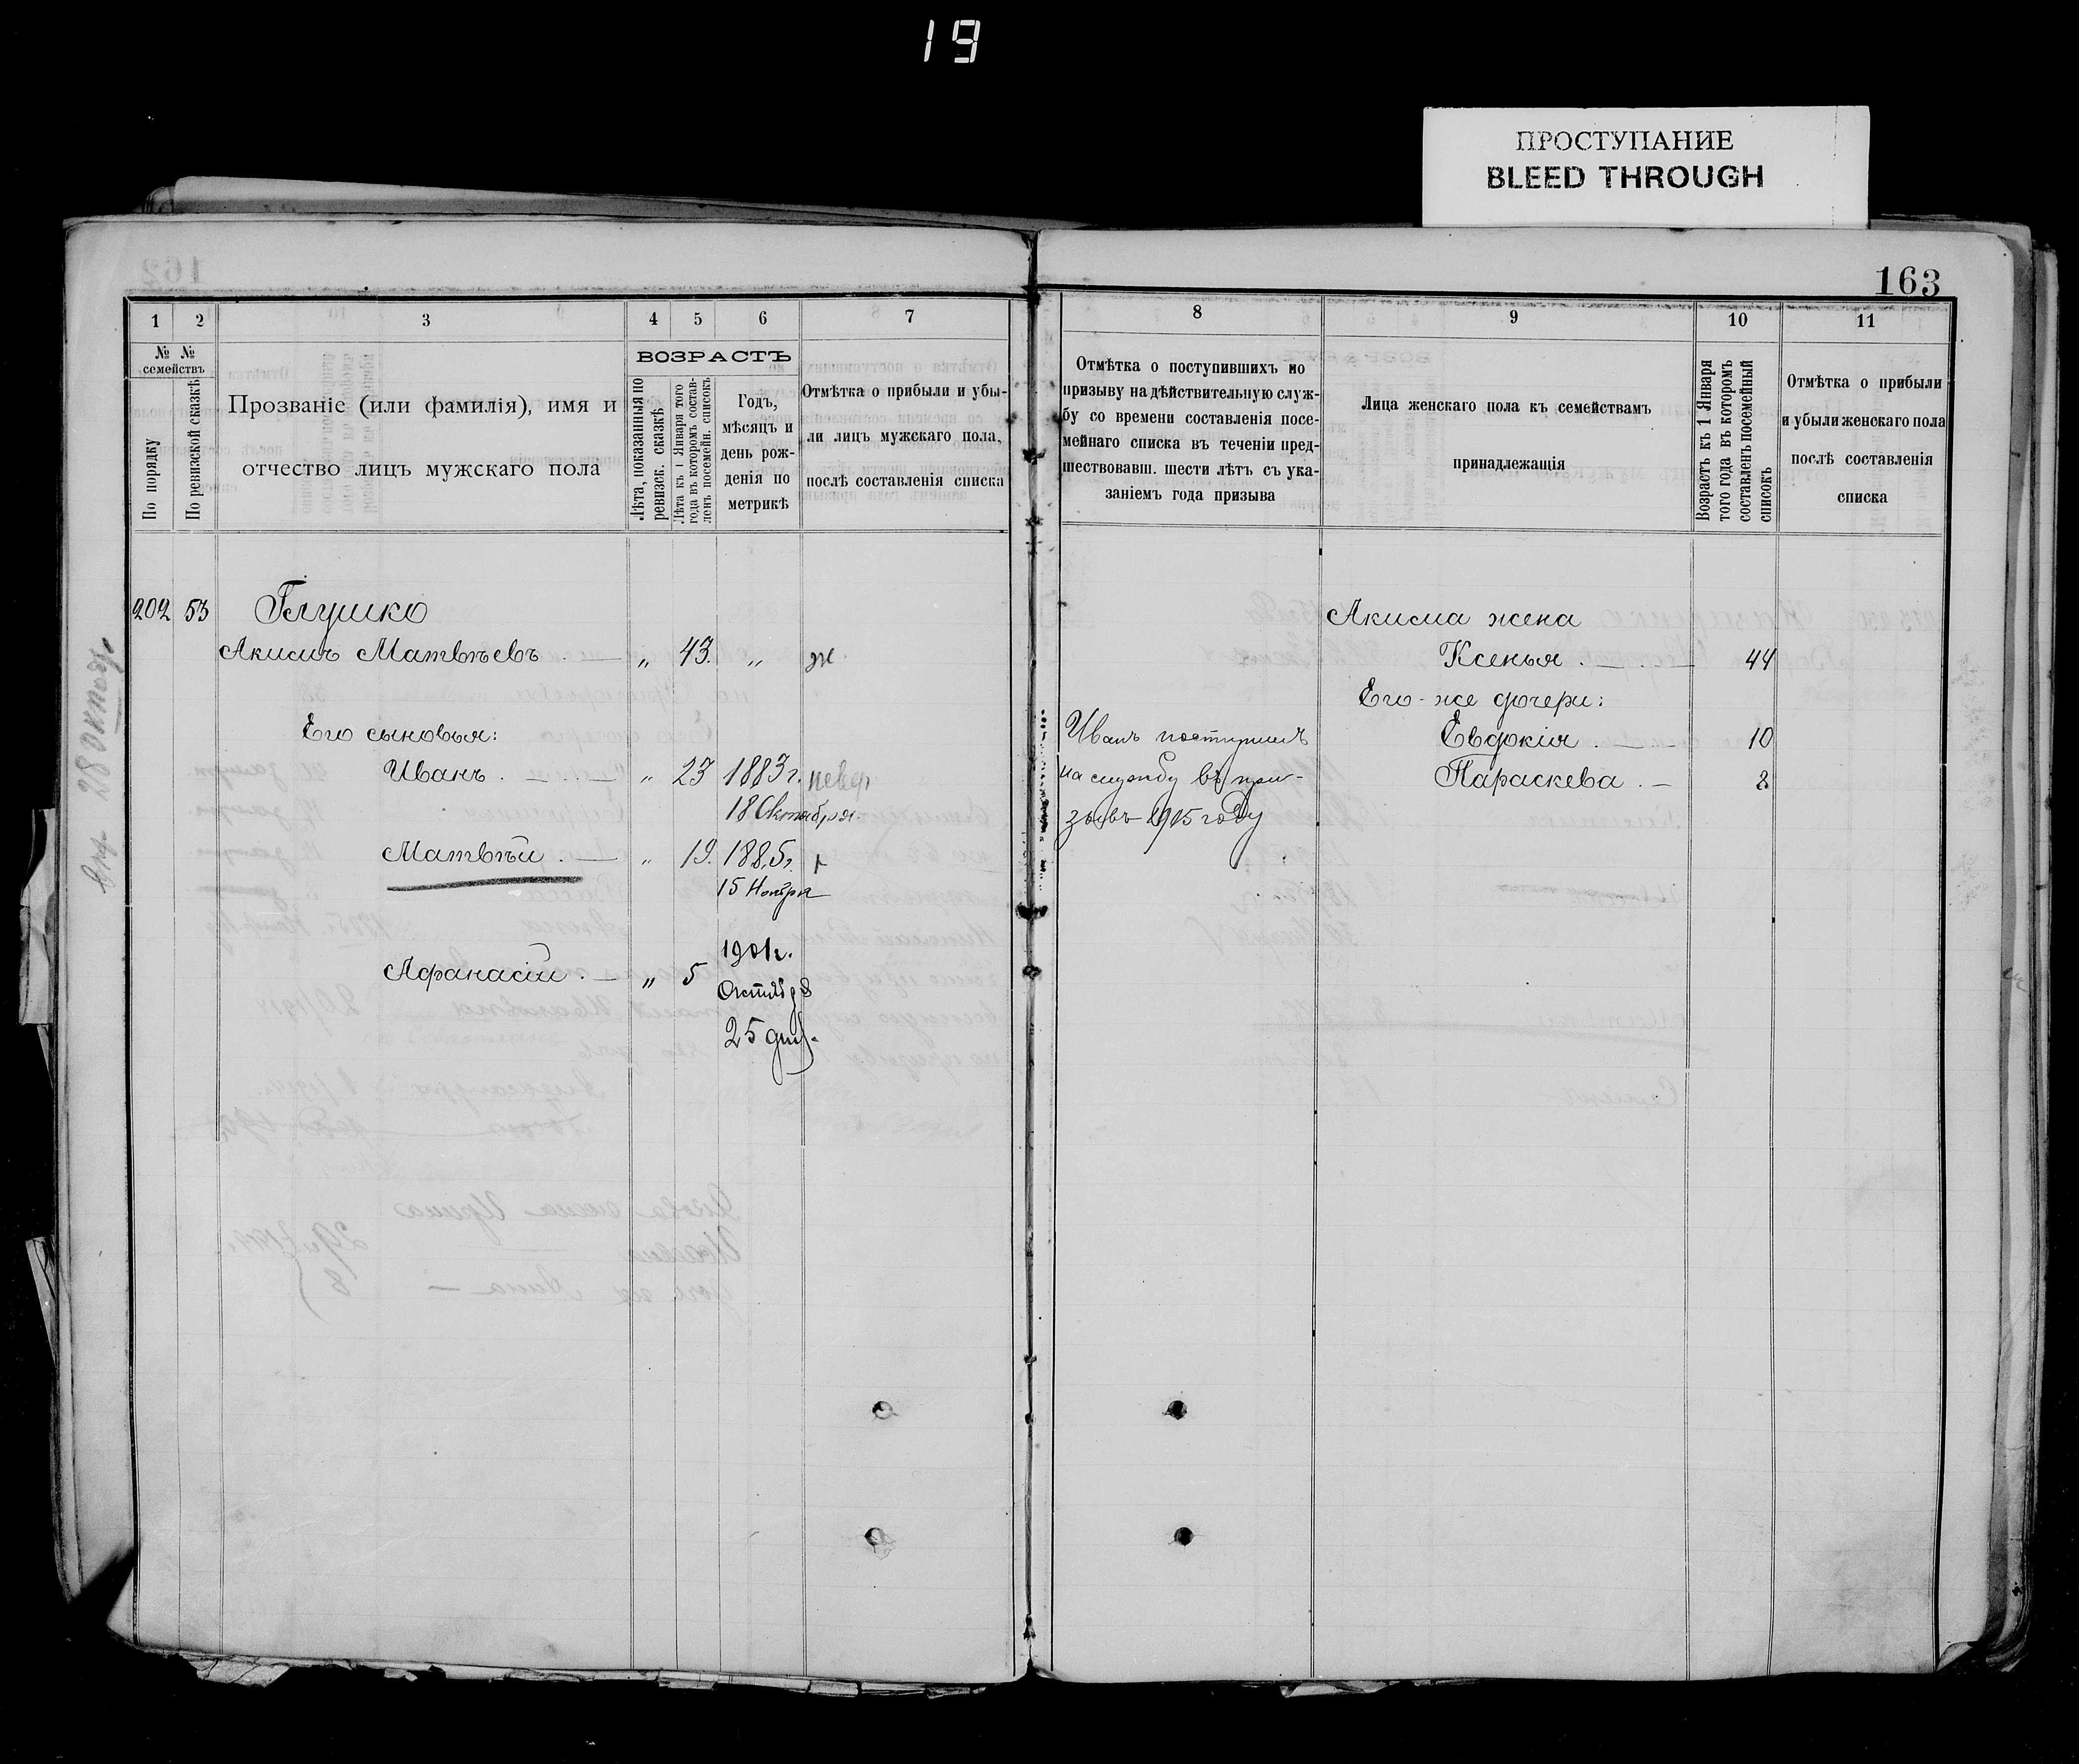 19
ПРОСТУПАНИЕ
BLEED THROUGH
163
1 2 3 4 5 6 7
№ №
семействъ
По порядку
По ревизской сказкѣ
Прозваніе (или фамилія), имя и
отчество лицъ мужскаго пола
ВОЗРАСТЪ
Лѣта, показанныя по
ревизск. сказкѣ
Лѣта къ 1 Января того
года въ которомъ состав-
ленъ посемейн. списокъ
Годъ,
мѣсяцъ и
день рож-
денія по
метрикѣ
Отмѣтка о прибыли и убы-
ли лицъ мужскаго пола,
послѣ составленія списка
8 9 10 11
Отмѣтка о поступившихъ по
призыву на дѣйствительную служ-
бу со времени составленія посе-
мейнаго списка въ теченіи пред-
шествовавш. шести лѣтъ съ ука-
заніемъ года призыва
Лица женскаго пола къ семействамъ
принадлежащія
Возрастъ къ 1 Января
того года въ которомъ
составленъ посемейный
списокъ
Отмѣтка о прибыли
и убыли женскаго пола
послѣ составленія
списка
202 53 Глушко
Акимъ Матвѣевъ . — „ 43. „ ж
Его сыновья:
Иванъ . — „ 23 1883 г.
18 Октября
Матвѣй . — „ 19. 1885 г.
15 Ноября
Афанасій . — „ 5 1901 г.
Октября
25 дня.
28 Октяб.
Иванъ поступилъ
на службу въ при-
зывъ 1915 году
Акима жена
Ксенья . — 44
Его-же дочери:
Евдокія . — 10
Параскева . — 8